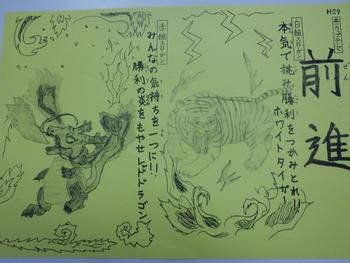 H29
前進
ぜん
白組スローガン
本気で挑み勝利をつかみとれ!!
ホワイトタイガー
赤組スローガン
みんなの気持ちを一つに!!
勝利の炎をもやせレッドドラゴン